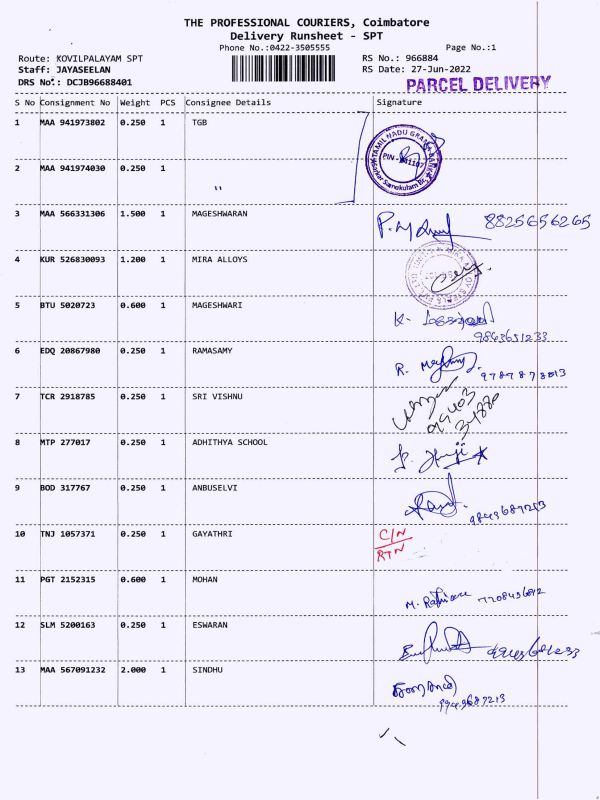 THE PROFESSIONAL COURIERS, Coimbatore
Delivery Runsheet - SPT
Phone No.:0422-3505555 Page No.:1
Route: KOVILPALAYAM SPT RS No.: 966884
Staff: JAYASEELAN RS Date: 27-Jun-2022
DRS No.: DCJB96688401 PARCEL DELIVERY
S No Consignment No Weight PCS Consignee Details Signature
1 MAA 941973802 0.250 1 TGB
TAMIL NADU GRAMA BANK
2 MAA 941974030 0.250 1 "
3 MAA 566331306 1.500 1 MAGESHWARAN
8825656265
4 KUR 526830093 1.200 1 MIRA ALLOYS
5 BTU 5020723 0.600 1 MAGESHWARI
K.
9843651233
6 EDQ 20867980 0.250 1 RAMASAMY
R. 9787878813
7 TCR 2918785 0.250 1 SRI VISHNU
8 MTP 277017 0.250 1 ADHITHYA SCHOOL
9 BOD 317767 0.250 1 ANBUSELVI
9849689213
10 TNJ 1057371 0.250 1 GAYATHRI C/N
RTN
11 PGT 2152315 0.600 1 MOHAN
M.
12 SLM 5200163 0.250 1 ESWARAN
13 MAA 567091232 2.000 1 SINDHU
9949689213